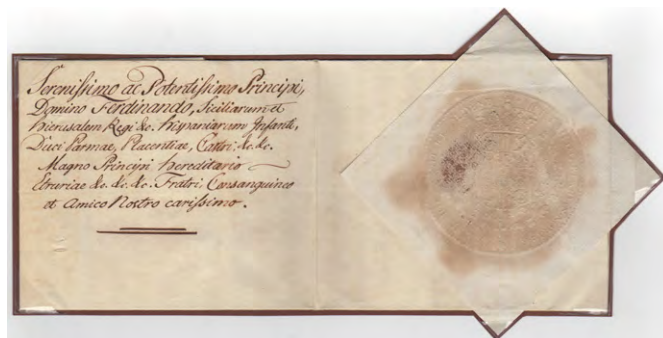 Serenissimo ac Potentissimo Principi,
Domino Ferdinando, Siciliarum et
Hierusalem Regi &c. Hispaniarum Infanti,
Duci Parmae, Placentiae, Castri &c. &c.
Magno Principi hereditario
Etruriae &c. &c. &c. Fratri Consanguineo
et Amico Nostro carissimo.